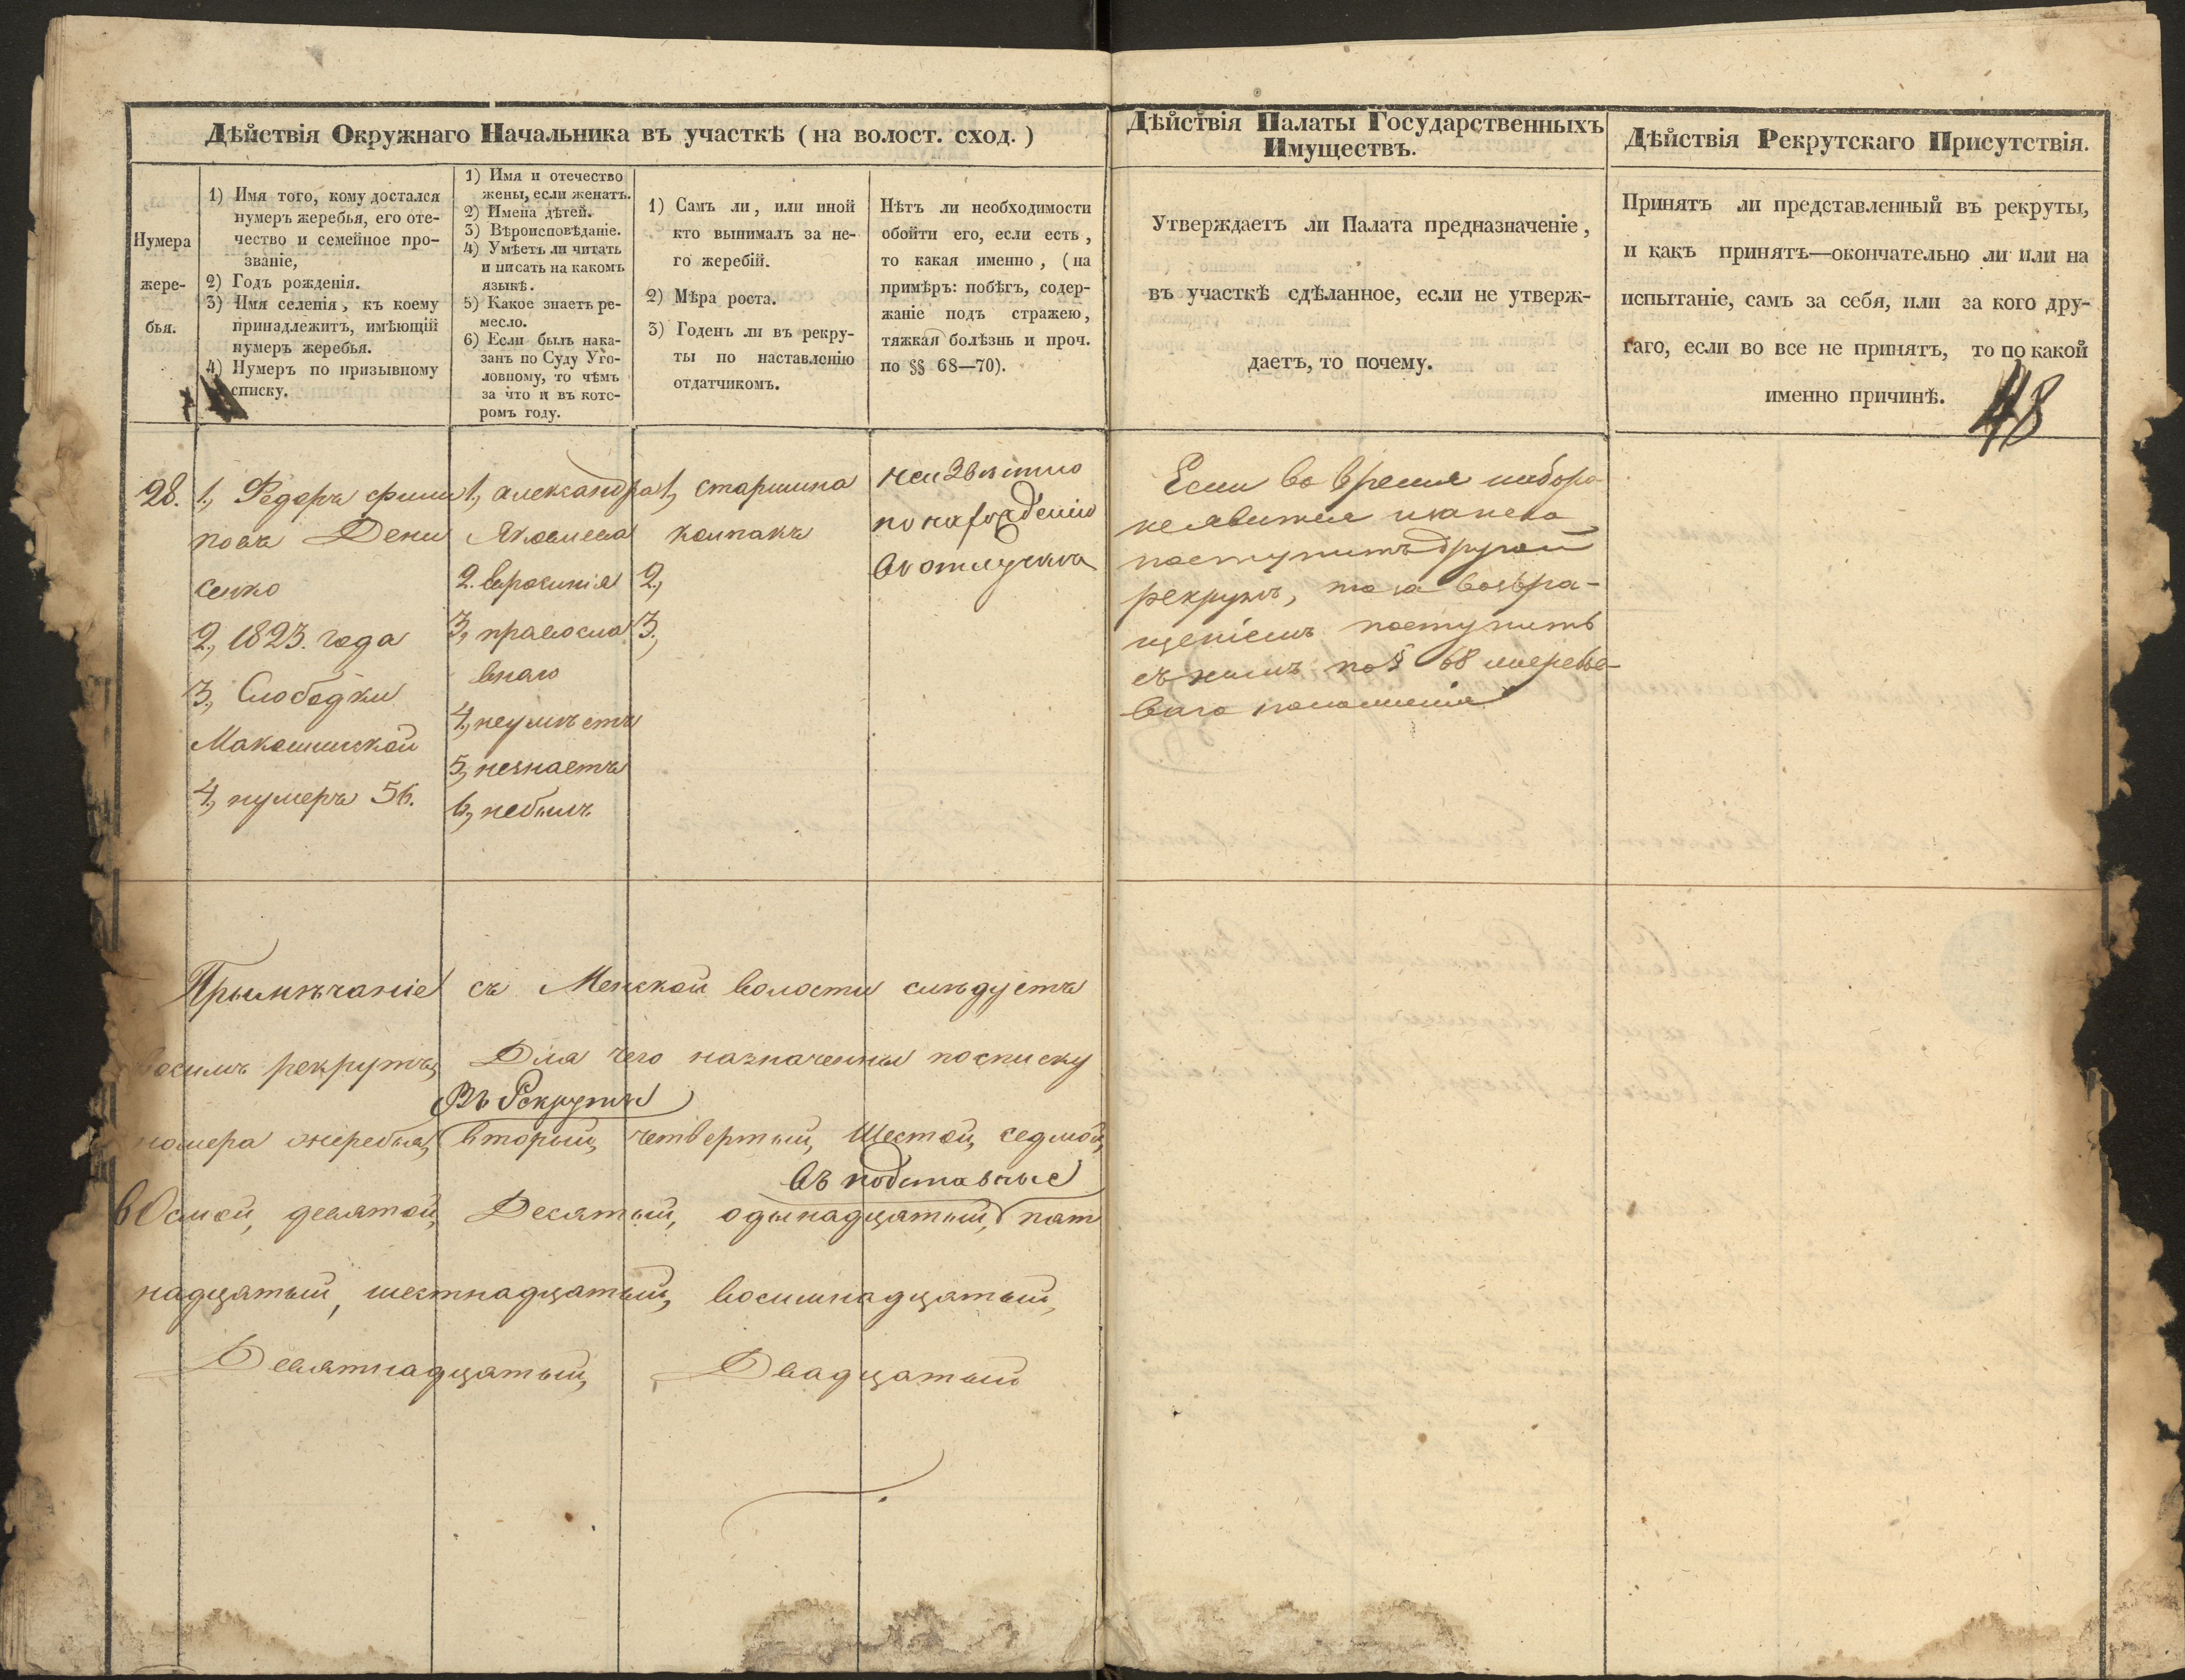 Дѣйствія Окружнаго Начальника въ участкѣ (на волост. сход.)
Нумера
жере-
бья.
1) Имя того, кому достался
нумеръ жеребья, его оте-
чество и семейное про-
званіе,
2) Годъ рожденія.
3) Имя селенія, къ коему
принадлежитъ, имѣющій
нумеръ жеребья.
4) Нумеръ по призывному
списку.
1) Имя и отечество
жены, если женатъ.
2) Имена дѣтей.
3) Вѣроисповѣданіе.
4) Умѣетъ ли читать
и писать на какомъ
языкѣ.
5) Какое знаетъ ре-
месло.
6) Если былъ нака-
занъ по Суду Уго-
ловному, то чѣмъ
за что и въ кото-
ромъ году.
1) Самъ ли, или иной
кто вынималъ за не-
го жеребій.
2) Мѣра роста.
3) Годенъ ли въ рекру-
ты по наставленію
отдатчикомъ.
Нѣтъ ли необходимости
обойти его, если есть,
то какая именно, (на
примѣръ: побѣгъ, содер-
жаніе подъ стражею,
тяжкая болѣзнь и проч.
по §§ 68—70).
Дѣйствія Палаты Государственныхъ
Имуществъ.
Утверждаетъ ли Палата предназначеніе,
въ участкѣ сдѣланное, если не утверж-
даетъ, то почему.
Дѣйствія Рекрутскаго Присутствія.
Принятъ ли представленный въ рекруты,
и какъ принятъ—окончательно ли или на
испытаніе, самъ за себя, или за кого дру-
гаго, если во все не принятъ, то по какой
именно причинѣ.
48
28.
1, Федоръ Фили
повъ Дени
сенко
2, 1823. года
3, Слободки
Макошинской
4, нумеръ 56.
1, александра
Яковлева
2. евросинія
3, правосла
внаго
4, неумѣетъ
5, незнаетъ
6, небылъ
1, старшина
колпакъ
2,
3,
неизвѣстно
по нахожденію
въ отлучкѣ
Если во время набора
неявится и за него
поступитъ другой
рекрутъ, то за возвра-
щеніемъ поступить
съ нимъ по § 68 жеребье-
ваго положенія
Прымѣчаніе съ Менской волости слѣдуетъ
восимъ рекрутъ, Для чего назначенны по списку
Въ Рекруты
номера жеребья, вторый, четвертый, Шестой, седмой,
въ подставные
вОсмой, девятой, Десятый, одынадцатый, пят
надцатый, шестнадцатый, восимнадцатый,
Девятнадцатый, Двадцатый